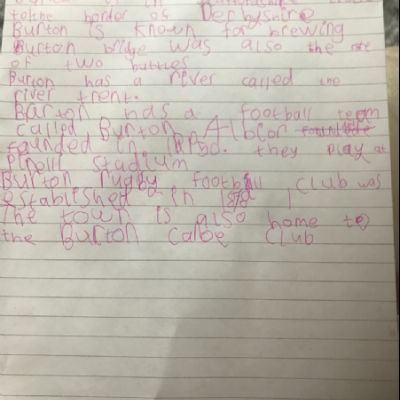 to the border of Derbyshire
Burton is known for brewing
Burton bridge was also the
of two battles
Burton has a river called the
river trent.
Barton has a football team
called Burton Albior
founded in they play at
Pirelli Stadium
Burton rugby football club was
established in
The town is also home to
the Burton canoe club